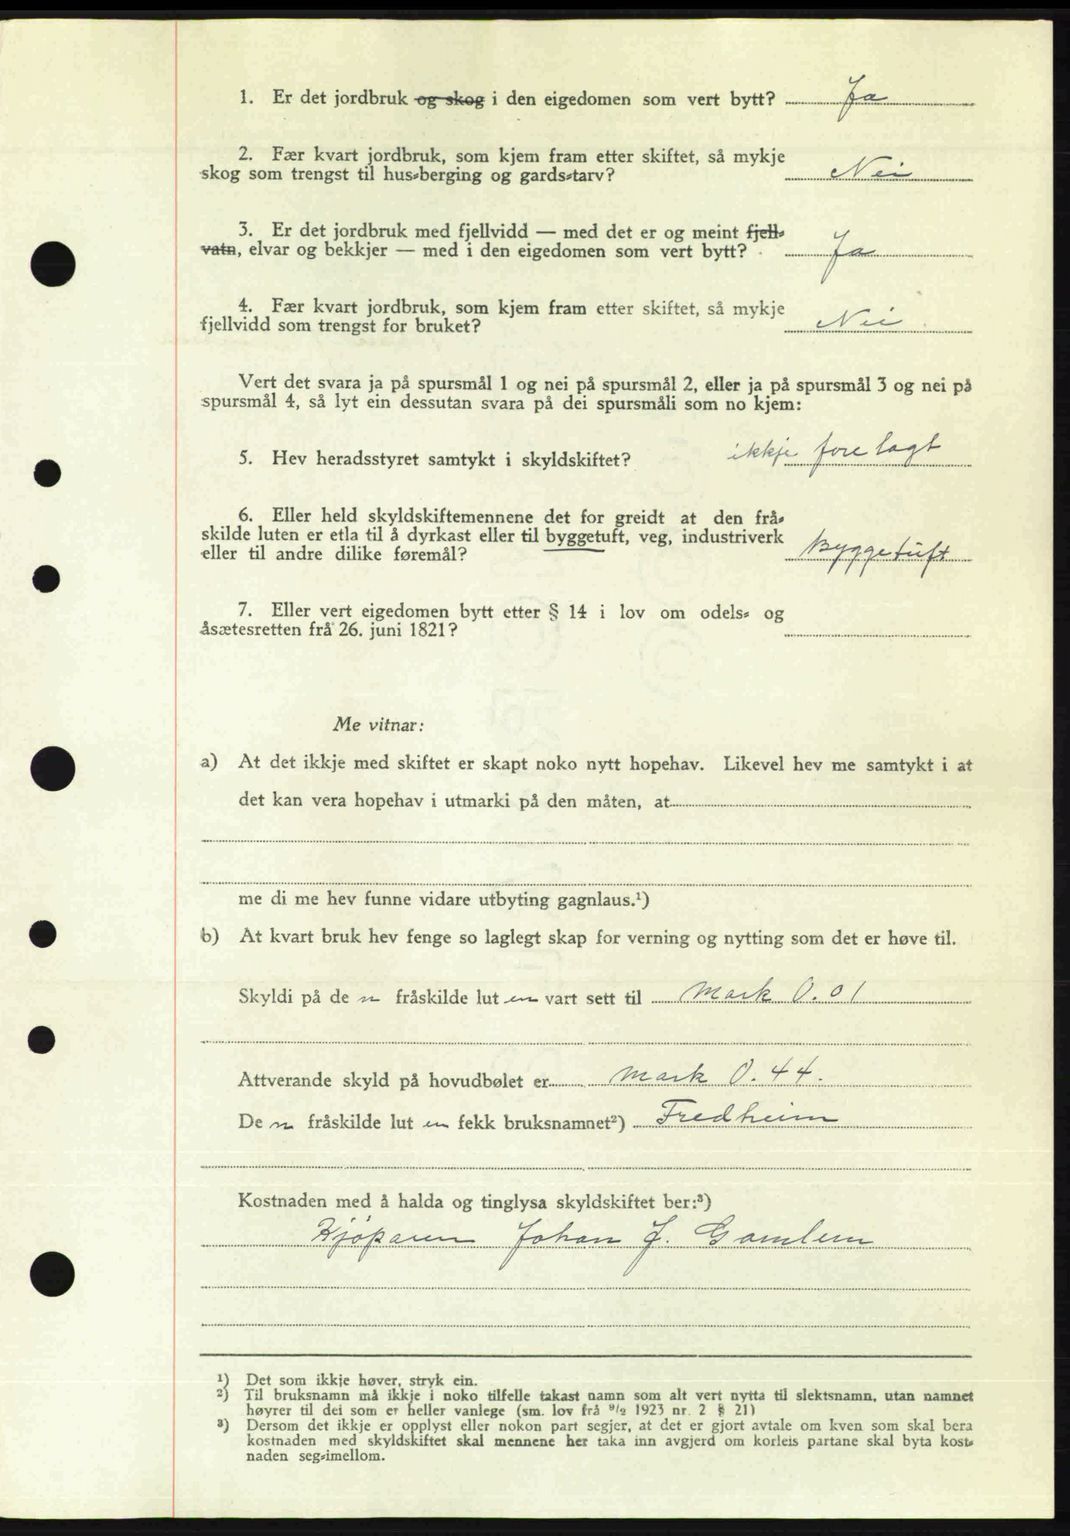 1. Er det jordbruk og skog i den eigedomen som vert bytt? Ja
2. Fær kvart jordbruk, som kjem fram etter skiftet, så mykje
skog som trengst til hus-berging og gards-tarv? Nei
3. Er det jordbruk med fjellvidd — med det er og meint fjell-
vatn, elvar og bekkjer — med i den eigedomen som vert bytt? Ja
4. Fær kvart jordbruk, som kjem fram etter skiftet, så mykje
fjellvidd som trengst for bruket? Nei
Vert det svara ja på spursmål 1 og nei på spursmål 2, eller ja på spursmål 3 og nei på
spursmål 4, så lyt ein dessutan svara på dei spursmåli som no kjem:
5. Hev heradsstyret samtykt i skyldskiftet? ikkje fore lagt
6. Eller held skyldskiftemennene det for greidt at den frå-
skilde luten er etla til å dyrkast eller til byggetuft, veg, industriverk
eller til andre dilike føremål? Byggetuft
7. Eller vert eigedomen bytt etter § 14 i lov om odels- og
åsætesretten frå 26. juni 1821?
Me vitnar:
a) At det ikkje med skiftet er skapt noko nytt hopehav. Likevel hev me samtykt i at
det kan vera hopehav i utmarki på den måten, at
me di me hev funne vidare utbyting gagnlaus.¹)
b) At kvart bruk hev fenge so laglegt skap for verning og nytting som det er høve til.
Skyldi på de n fråskilde lut en vart sett til Mark 0.01
Attverande skyld på hovudbølet er Mark 0.44.
De n fråskilde lut en fekk bruksnamnet²) Fredheim
Kostnaden med å halda og tinglysa skyldskiftet ber:³)
Kjöparen Johan J. Gamlem
¹) Det som ikkje høver, stryk ein.
²) Til bruksnamn må ikkje i noko tilfelle takast namn som alt vert nytta til slektsnamn, utan namnet
høyrer til dei som er heller vanlege (sm. lov frå 9/2 1923 nr. 2 § 21)
³) Dersom det ikkje er opplyst eller nokon part segjer, at det er gjort avtale om kven som skal bera
kostnaden med skyldskiftet skal mennene her taka inn avgjerd om korleis partane skal byta kost-
naden seg-imellom.